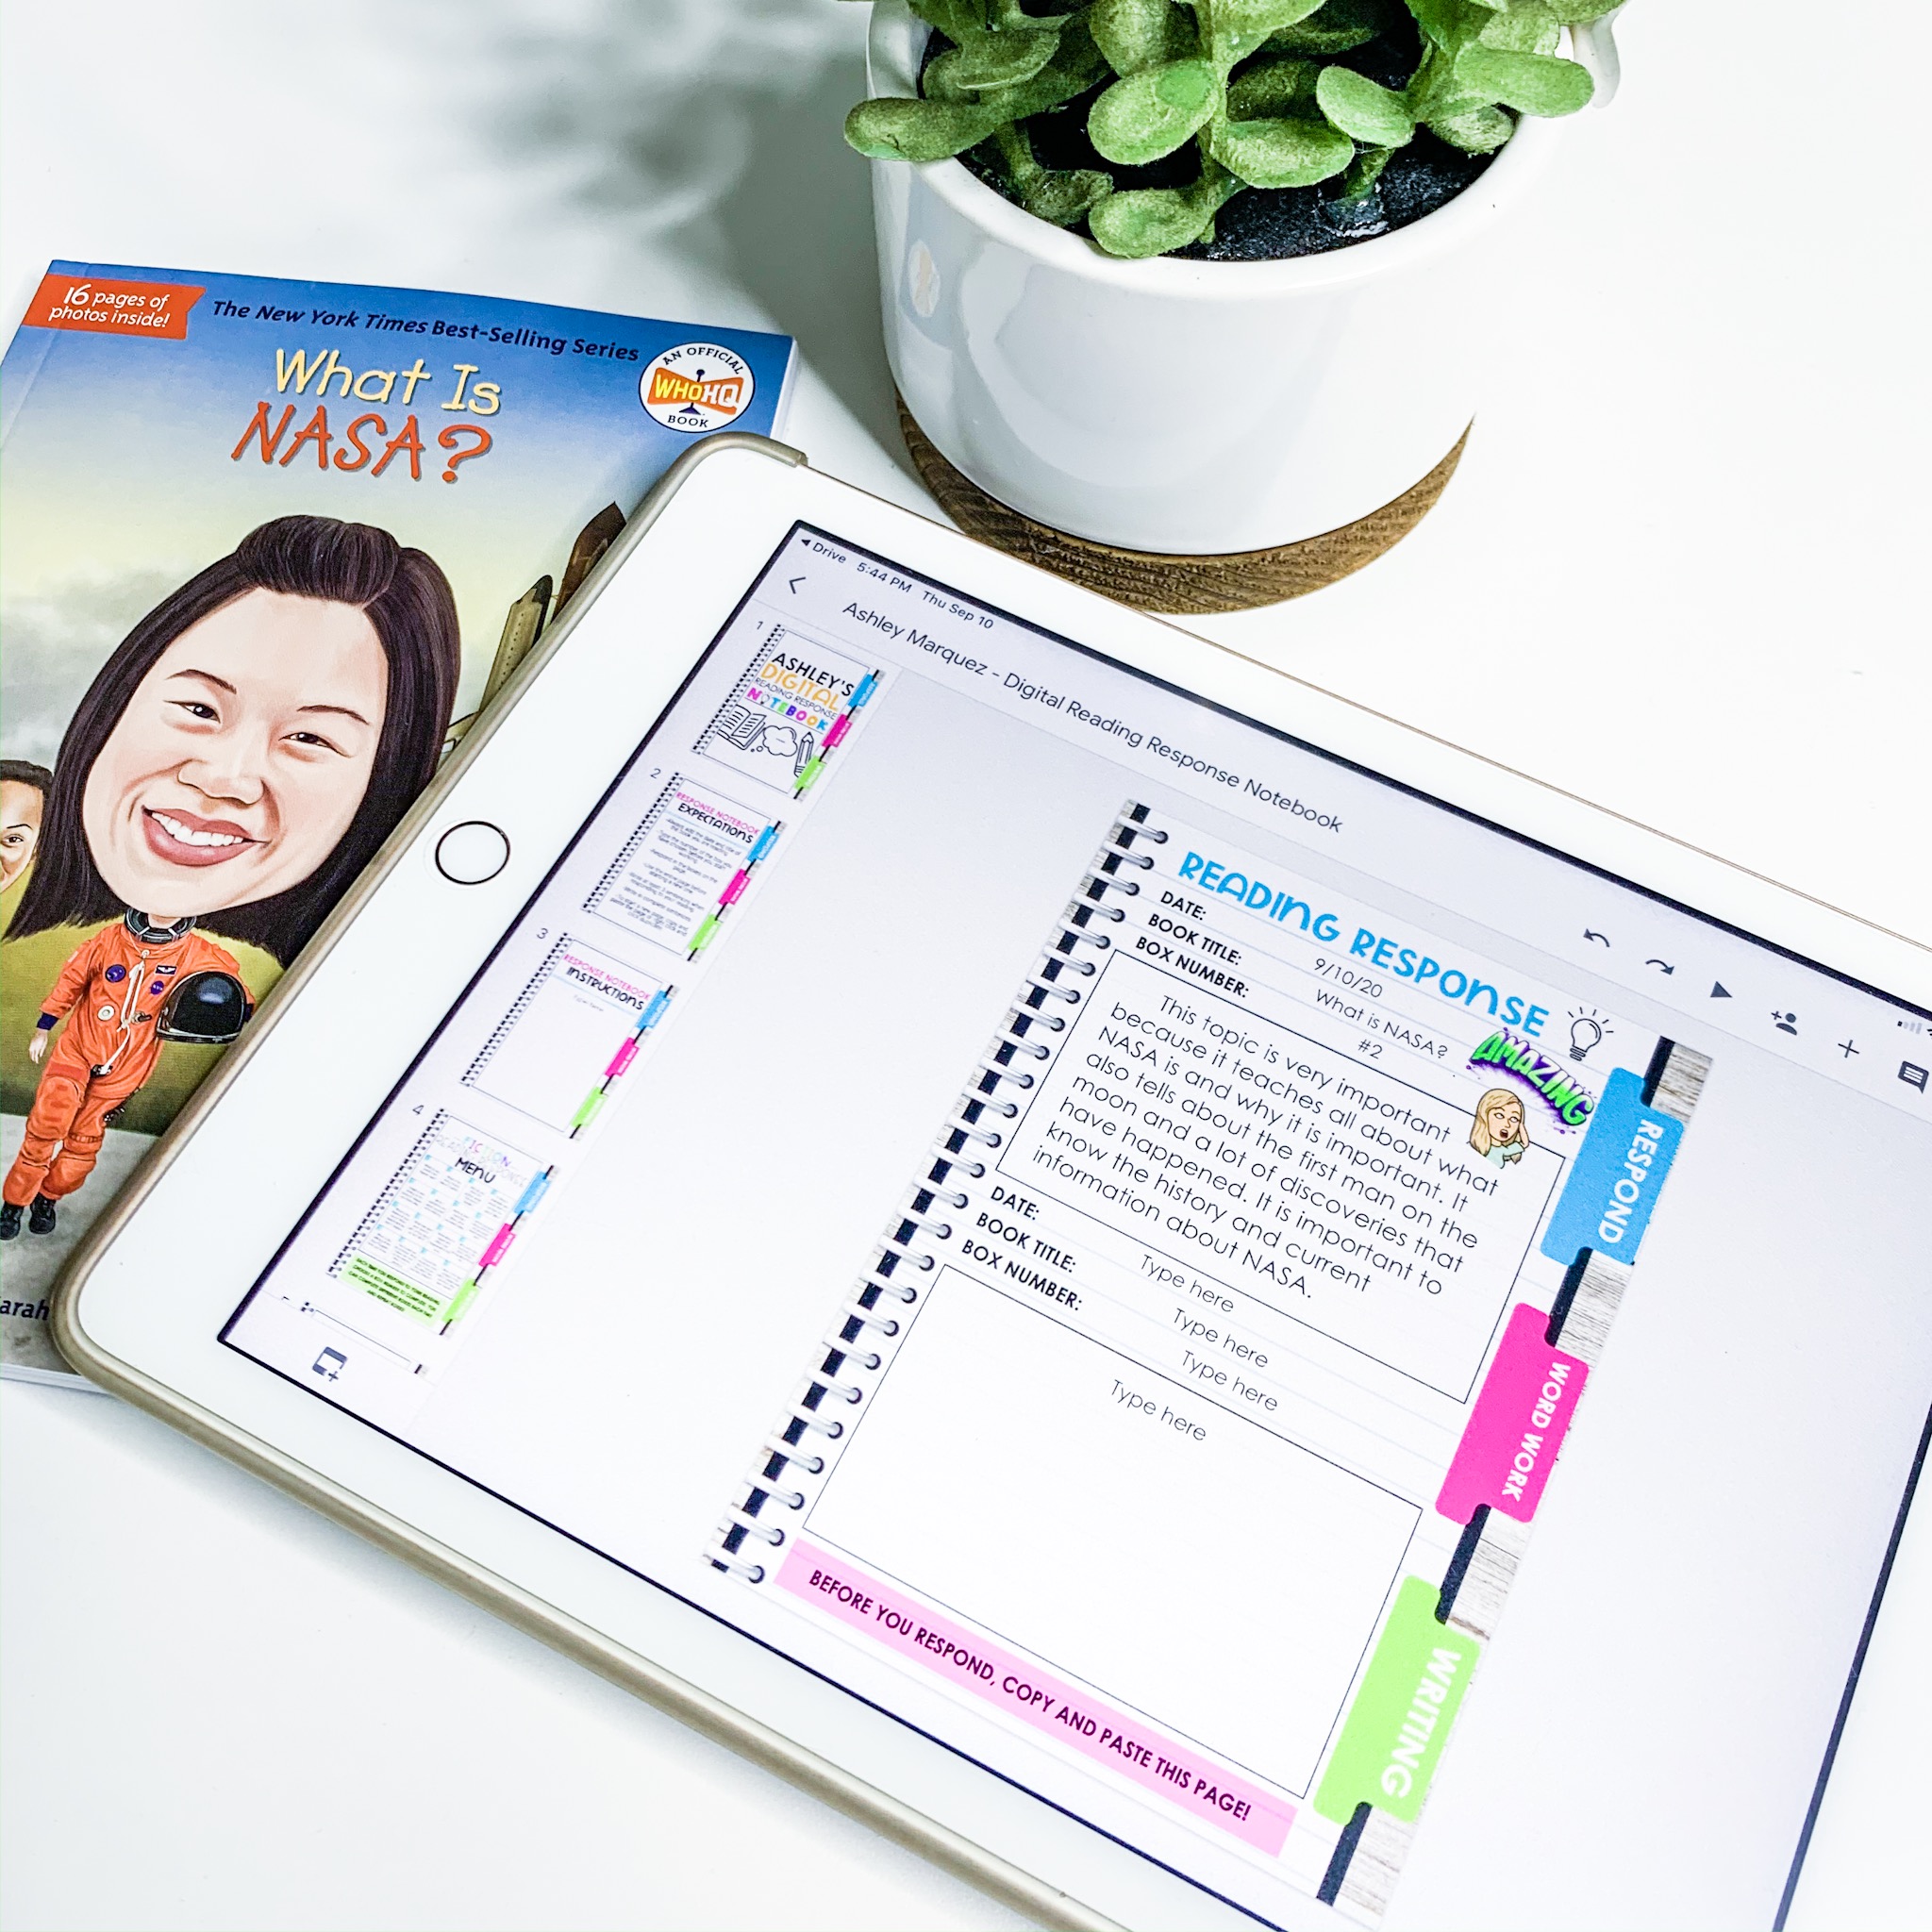 16 pages of
photos inside!
The New York Times Best-Selling Series
What Is
NASA?
AN OFFICIAL
WHOHQ
BOOK
arah
Drive 5:44 PM Thu Sep 10
Ashley Marquez - Digital Reading Response Notebook
1
ASHLEY'S
DIGITAL
READING RESPONSE
NOTEBOOK
2
RESPONSE NOTEBOOK
EXPECTATIONS
3
RESPONSE NOTEBOOK
INSTRUCTIONS
4
MENU
READING RESPONSE
DATE: 9/10/20
BOOK TITLE: What is NASA?
BOX NUMBER: #2
AMAZING
This topic is very important
because it teaches all about what
NASA is and why it is important. It
also tells about the first man on the
moon and a lot of discoveries that
have happened. It is important to
know the history and current
information about NASA.
DATE: Type here
BOOK TITLE: Type here
BOX NUMBER: Type here
Type here
BEFORE YOU RESPOND, COPY AND PASTE THIS PAGE!
RESPOND
WORD WORK
WRITING